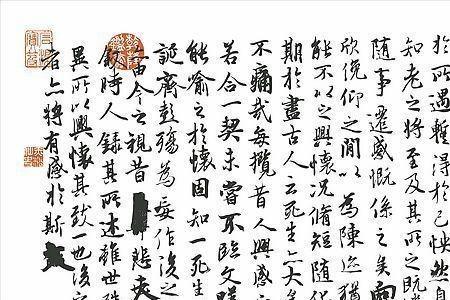 於所遇蹔得於己怏然自
知老之將至及其所之既
隨事遷感慨係之矣向
欣俛仰之閒以為陳迹猶
能不以之興懷況脩短隨化
期於盡古人云死生亦大
不痛哉每攬昔人興感之
若合一契未嘗不臨文嗟
能喻之於懷固知一死生
誕齊彭殤為妄作後之
由今之視昔悲夫
敘時人錄其所述雖世殊
異所以興懷其致一也後之
者亦將有感於斯文